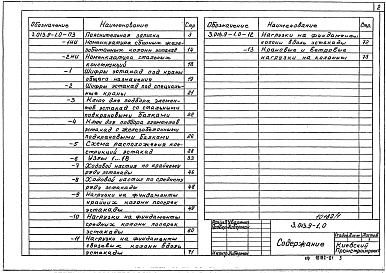 2
Обозначение Наименование Стр.
3.015.9-1.0-ПЗ Пояснительная записка 3
-1НИ Номенклатура сборных железобетонных колонн эстакад 14
-2НИ Номенклатура стальных конструкций 18
-1 Шифры эстакад под краны общего назначения 19
-2 Шифры эстакад под специальные краны 21
-3 Ключ для подбора элементов эстакад со стальными подкрановыми балками 22
-4 Ключ для подбора элементов эстакад с железобетонными подкрановыми балками 26
-5 Схема расположения конструкций эстакад 28
-6 Узлы 1...18 33
-7 Ходовой настил по крайнему ряду эстакады 46
-8 Ходовой настил по среднему ряду эстакады 48
-9 Нагрузки на фундаменты крайних колонн поперек эстакады 49
-10 Нагрузки на фундаменты средних колонн поперек эстакады 60
-11 Нагрузки на фундаменты связевых колонн вдоль эстакады 71
Обозначение Наименование Стр.
3.015.9-1.0-12 Нагрузки на фундаменты колонн вдоль эстакады 72
-13 Крановые и ветровые нагрузки на колонны 73
3.015.9-1.0
Содержание
Киевский